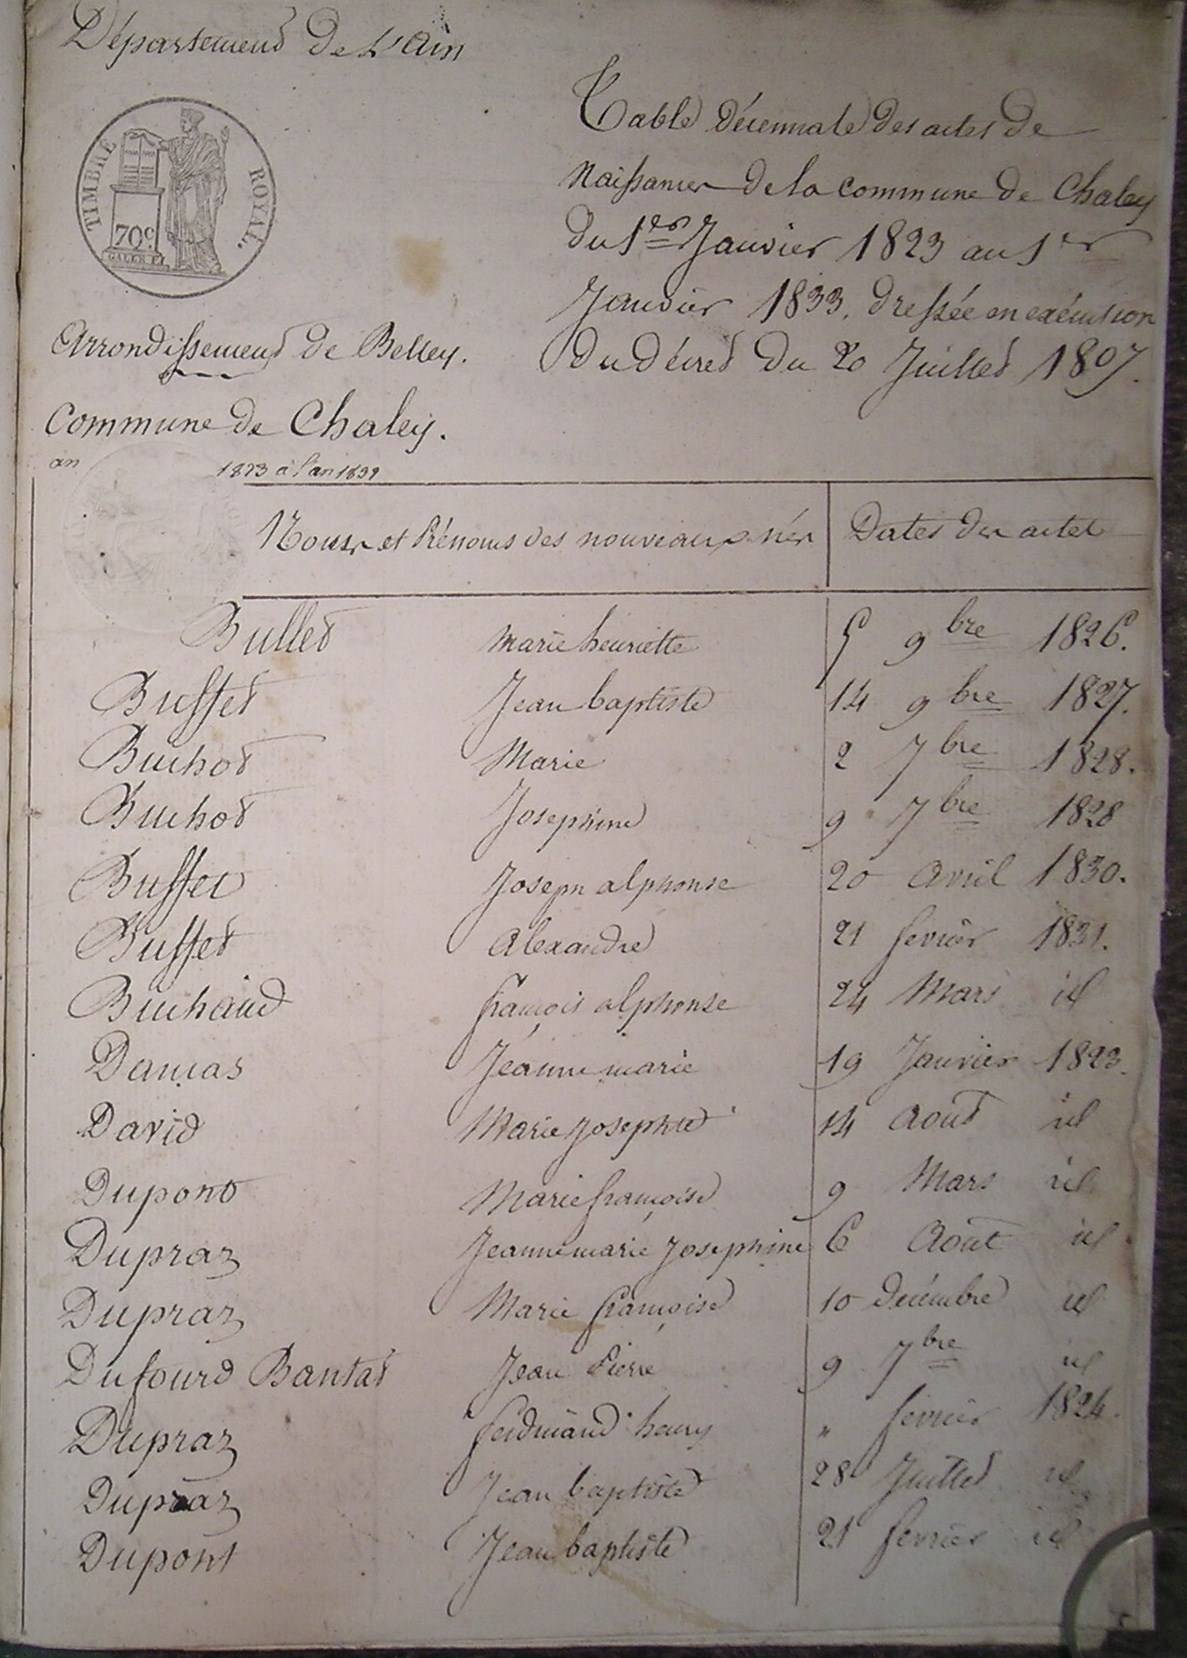 Département de L'ain
TIMBRE ROYAL.
70c
Table décennale des actes de
Naissances de la commune de Chaley
du 1er Janvier 1823 au 1er
Janvier 1833. dressée en exécution
du décret du 20 Juillet 1807.
Arrondissement de Belley.
Commune de Chaley.
an 1823 à l'an 1832
Noms et Prénoms des nouveaux nés Dates des actes
Bullet marie henriette 5 9bre 1826.
Buffet Jean baptiste 14 9bre 1827.
Buchot Marie 2 7bre 1828.
Buchot Josephine 9 7bre 1828
Buffet Joseph alphonse 20 avril 1830.
Buffet Alexandre 21 fevrier 1831.
Buchaud françois alphonse 24 Mars id
Damas Jeanne marie 19 Janvier 1823.
David Marie Josephte 14 Aout id
Dupont Marie françoise 9 Mars id
Dupraz Jeanne marie Josephine 6 Aout id
Dupraz Marie françoise 10 decembre id
Dufourd Bantat Jean Pierre 9 7bre id
Dupraz ferdinand henry " fevrier 1824.
Dupraz Jean baptiste 28 Juillet id
Dupont Jean baptiste 21 fevrier id